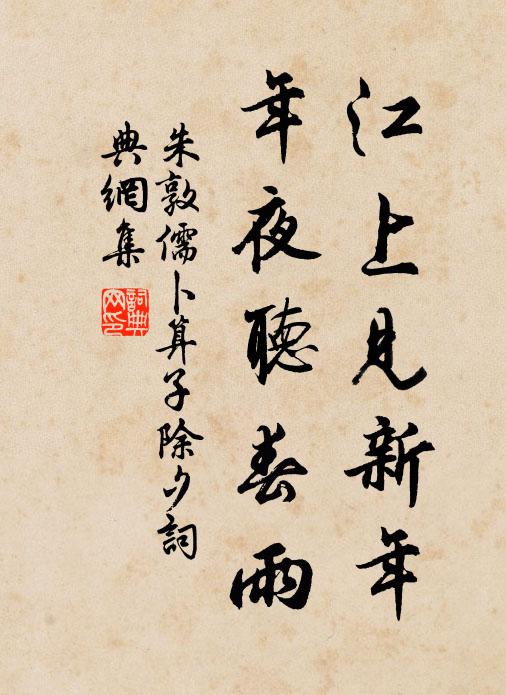 江上見新年
年夜聽春雨
朱敦儒卜算子除夕詞
典網集
詞典網印